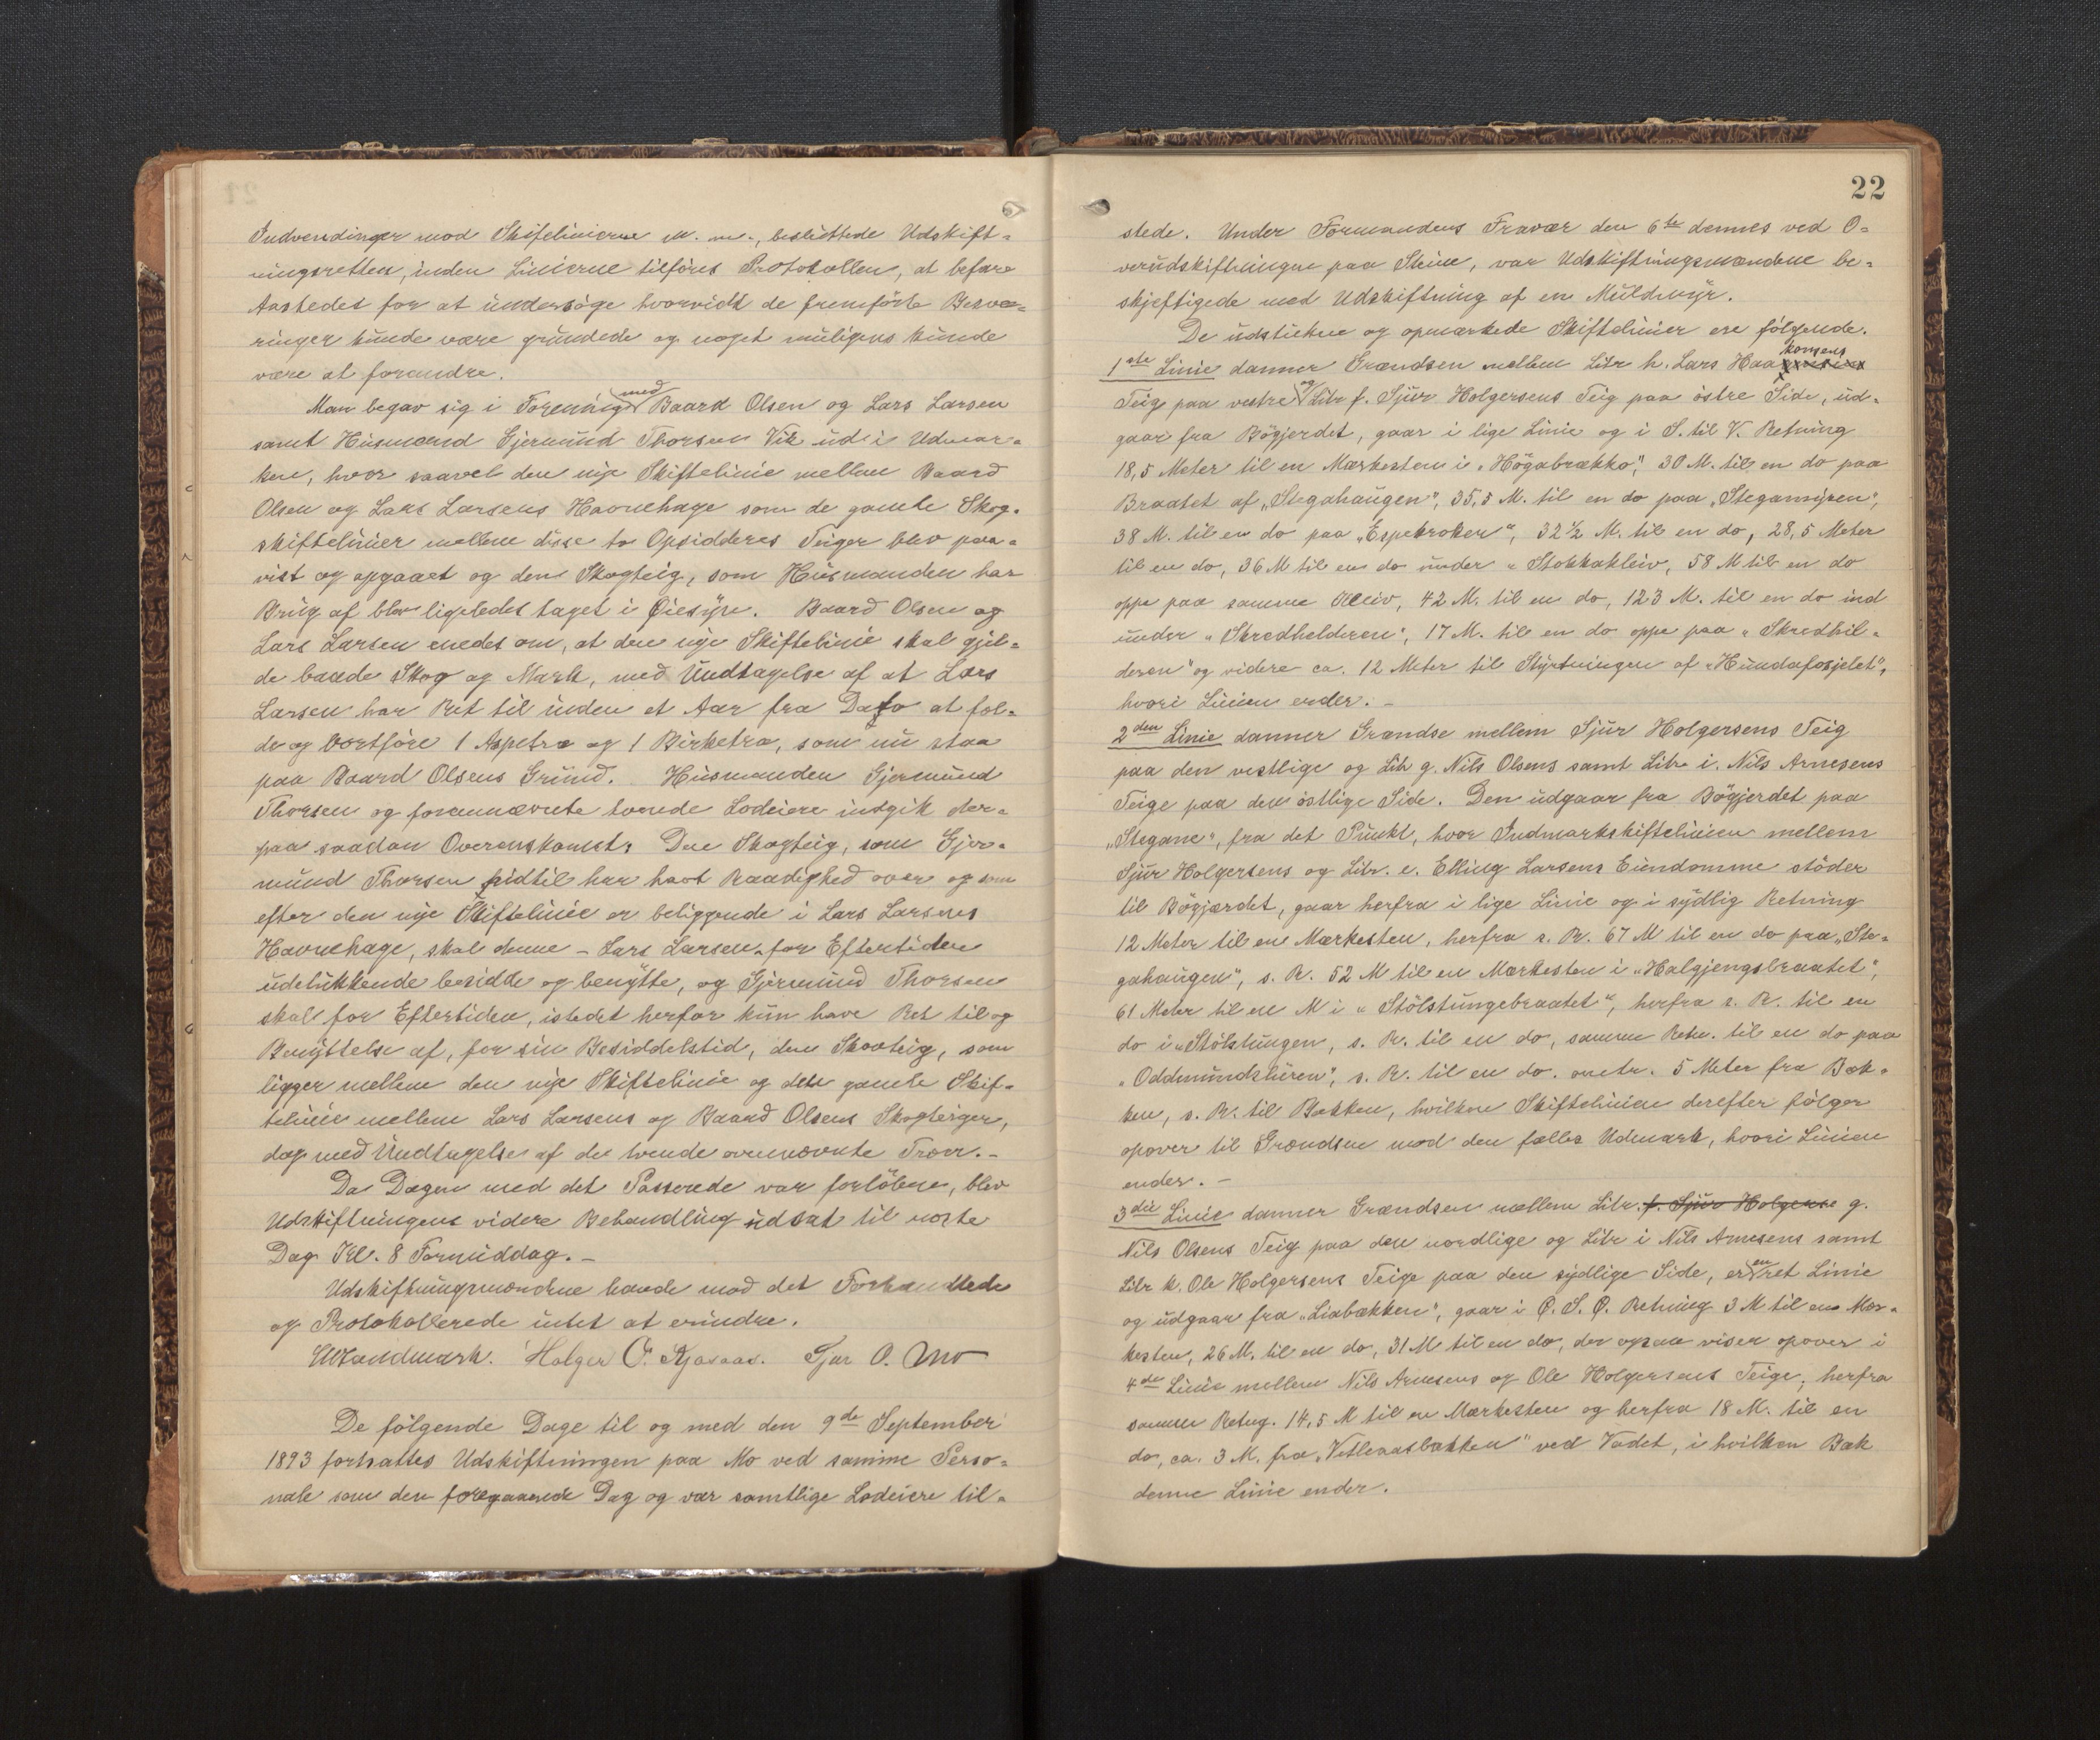 Indvendinger mod Skifelinierne m. m., besluttede Udskift-
ningsretten, inden Linierne tilföres Protokollen, at befare
Aastedet for at undersöge hvorvidt de fremförte Besvæ-
ringer kunde være grundede og noget muligens kunde
være at forandre.
Man begav sig i Forening med Baard Olsen og Lars Larsen
samt Husmand Gjermund Thorsen Vik ud i Udmar-
ken, hvor saavel den nye Skiftelinie mellem Baard
Olsen og Lars Larsens Havnehage som de gamle Skog-
skiftelinier mellem disse to Opsidderes Teiger blev paa-
vist og opgaaet og den Skogteig, som Husmanden har
Brug af blev ligeledes taget i Øiesyn. Baard Olsen og
Lars Larsen enedes om, at den nye Skiftelinie skal gjæl-
de baade Skog og Mark, med Undtagelse af at Lars
Larsen har Ret til inden et Aar fra Dato at fæl-
de og bortföre 1 Aspetræ og 1 Birketræ, som nu staa
paa Baard Olsens Grund. Husmanden Gjermund
Thorsen og forennævnte tvende Lodeiere indgik der-
paa saadan Overenskomst: Den Skogteig, som Gjer-
mund Thorsen hidtil har havt Raadighed over og som
efter den nye Skiftelinie er beliggende i Lars Larsens
Havnehage, skal denne - Lars Larsen - for Eftertiden
udelukkende besidde og benytte, og Gjermund Thorsen
skal for Eftertiden, istedet herfor kun have Ret til og
Benyttelse af, for sin Besiddelstid, den Skovteig, som
ligger mellem den nye Skiftelinie og den gamle Skif-
telinie mellem Lars Larsens og Baard Olsens Skogteiger,
dog med Undtagelse af de tvende ovennævnte Træer. -
Da Dagen med det Passerede var forlöben, blev
Udskiftningens videre Behandling udsat til næste
Dag Kl. 8 Formiddag. -
Udskiftningsmændene havde mod det Forhandlede
og Protokollerede intet at erindre.
Landmark. Holger O. Sjur O. Mo
De følgende Dage til og med den 9de September
1893 fortsattes Udskiftningen paa Mo ved samme Perso-
nale som den foregaaende Dag og var samtlige Lodeiere til-
22
stede. Under Formandens Fravær den 6te dennes ved O-
verudskiftningen paa Skine, var Udskiftningsmændene be-
skjeftigede med Udskiftning af en Muldmyr.
De udstukne og opmærkede Skiftelinier ere følgende.
1ste Linie danner Grændsen mellem Litr h. Lars Haakonsens
Teig paa vestre og Litr f. Sjur Holgersens Teig paa östre Side, ud-
gaar fra Bögjerdet, gaar i lige Linie og i S. til V. Retning
18,5 Meter til en Mærkesten i "Högabrækko", 30 M. til en do paa
Braatet af "Stegahaugen", 35,5 M. til en do paa "Stegamyren",
38 M. til en do paa "Espekroken", 32 1/2 M. til en do, 28,5 Meter
til en do, 36 M til en do under "Stokkakleiv, 58 M til en do
oppe paa samme Kleiv, 42 M. til en do, 123 M. til en do ind
under "Skredhelderen", 17 M. til en do oppe paa "Skredhel-
deren" og videre ca. 12 Meter til Styrtningen af "Hundafosjelet",
hvori Linien ender. -
2den Linie danner Grændse mellem Sjur Holgersens Teig
paa den vestlige og Litr g. Nils Olsens samt Litr i. Nils Arnesens
Teige paa den östlige Side. Den udgaar fra Bögjerdet paa
"Stegane", fra det Punkt, hvor Indmarkskiftelinien mellem
Sjur Holgersens og Litr. e. Elling Larsens Eiendomme stöder
til Bögjærdet, gaar herfra i lige Linie og i sydlig Retning
12 Meter til en Mærkesten, herfra s. R. 67 M til en do paa "Ste-
gahaugen", s. R. 52 M til en Mærkesten i "Halgjengsbraatet",
61 Meter til en M i "Stölstungebraatet", herfra s. R. til en
do i "Stölstungen, s. R. til en do, samme Retn. til en do paa
"Oddmundsluren", s. R. til en do. omtr. 5 Meter fra Bæk-
ken, s. R. til Bækken, hvilken Skiftelinien derefter fölger
opover til Grændsen mod den fælles Udmark, hvori Linien
ender. -
3die Linie danner Grændsen mellem Litr. f. Sjur Holgerse g.
Nils Olsens Teig paa den nordlige og Litr i Nils Arnesens samt
Litr k. Ole Holgersens Teige paa den sydlige Side, er en ret Linie
og udgaar fra "Liabækken", gaar i Ø. S. Ø. Retning 3 M til en Mær-
kesten, 26 M. til en do, 31 M til en do, der ogsaa viser opover i
4de Linie mellem Nils Arnesens og Ole Holgersens Teige, herfra
samme Retng. 14,5 M til en Mærkesten og herfra 18 M. til en
do, ca. 3 M. fra "Vetleaasbækken" ved Vadet, i hvilken Bæk
denne Linie ender.